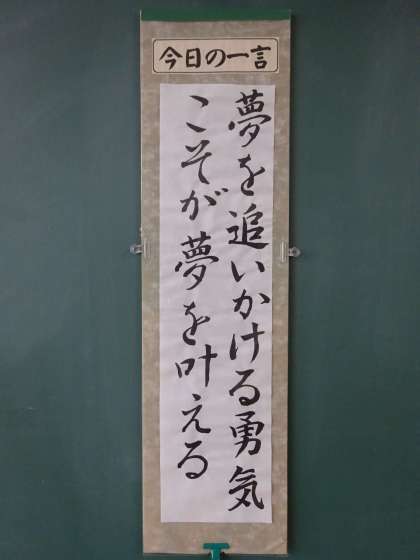 今日の一言
夢を追いかける勇気
こそが夢を叶える